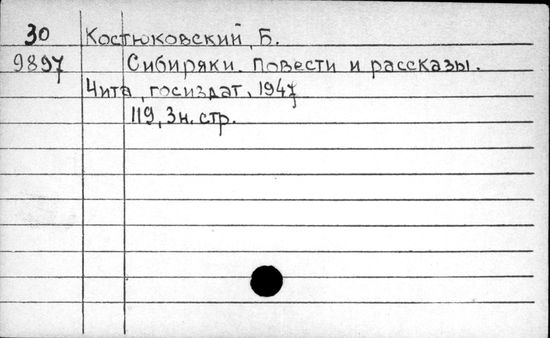 30 Костюковский, Б.
9897 Сибиряки. Повести и рассказы.
Чита, госиздат, 1947
119, 3н. стр.